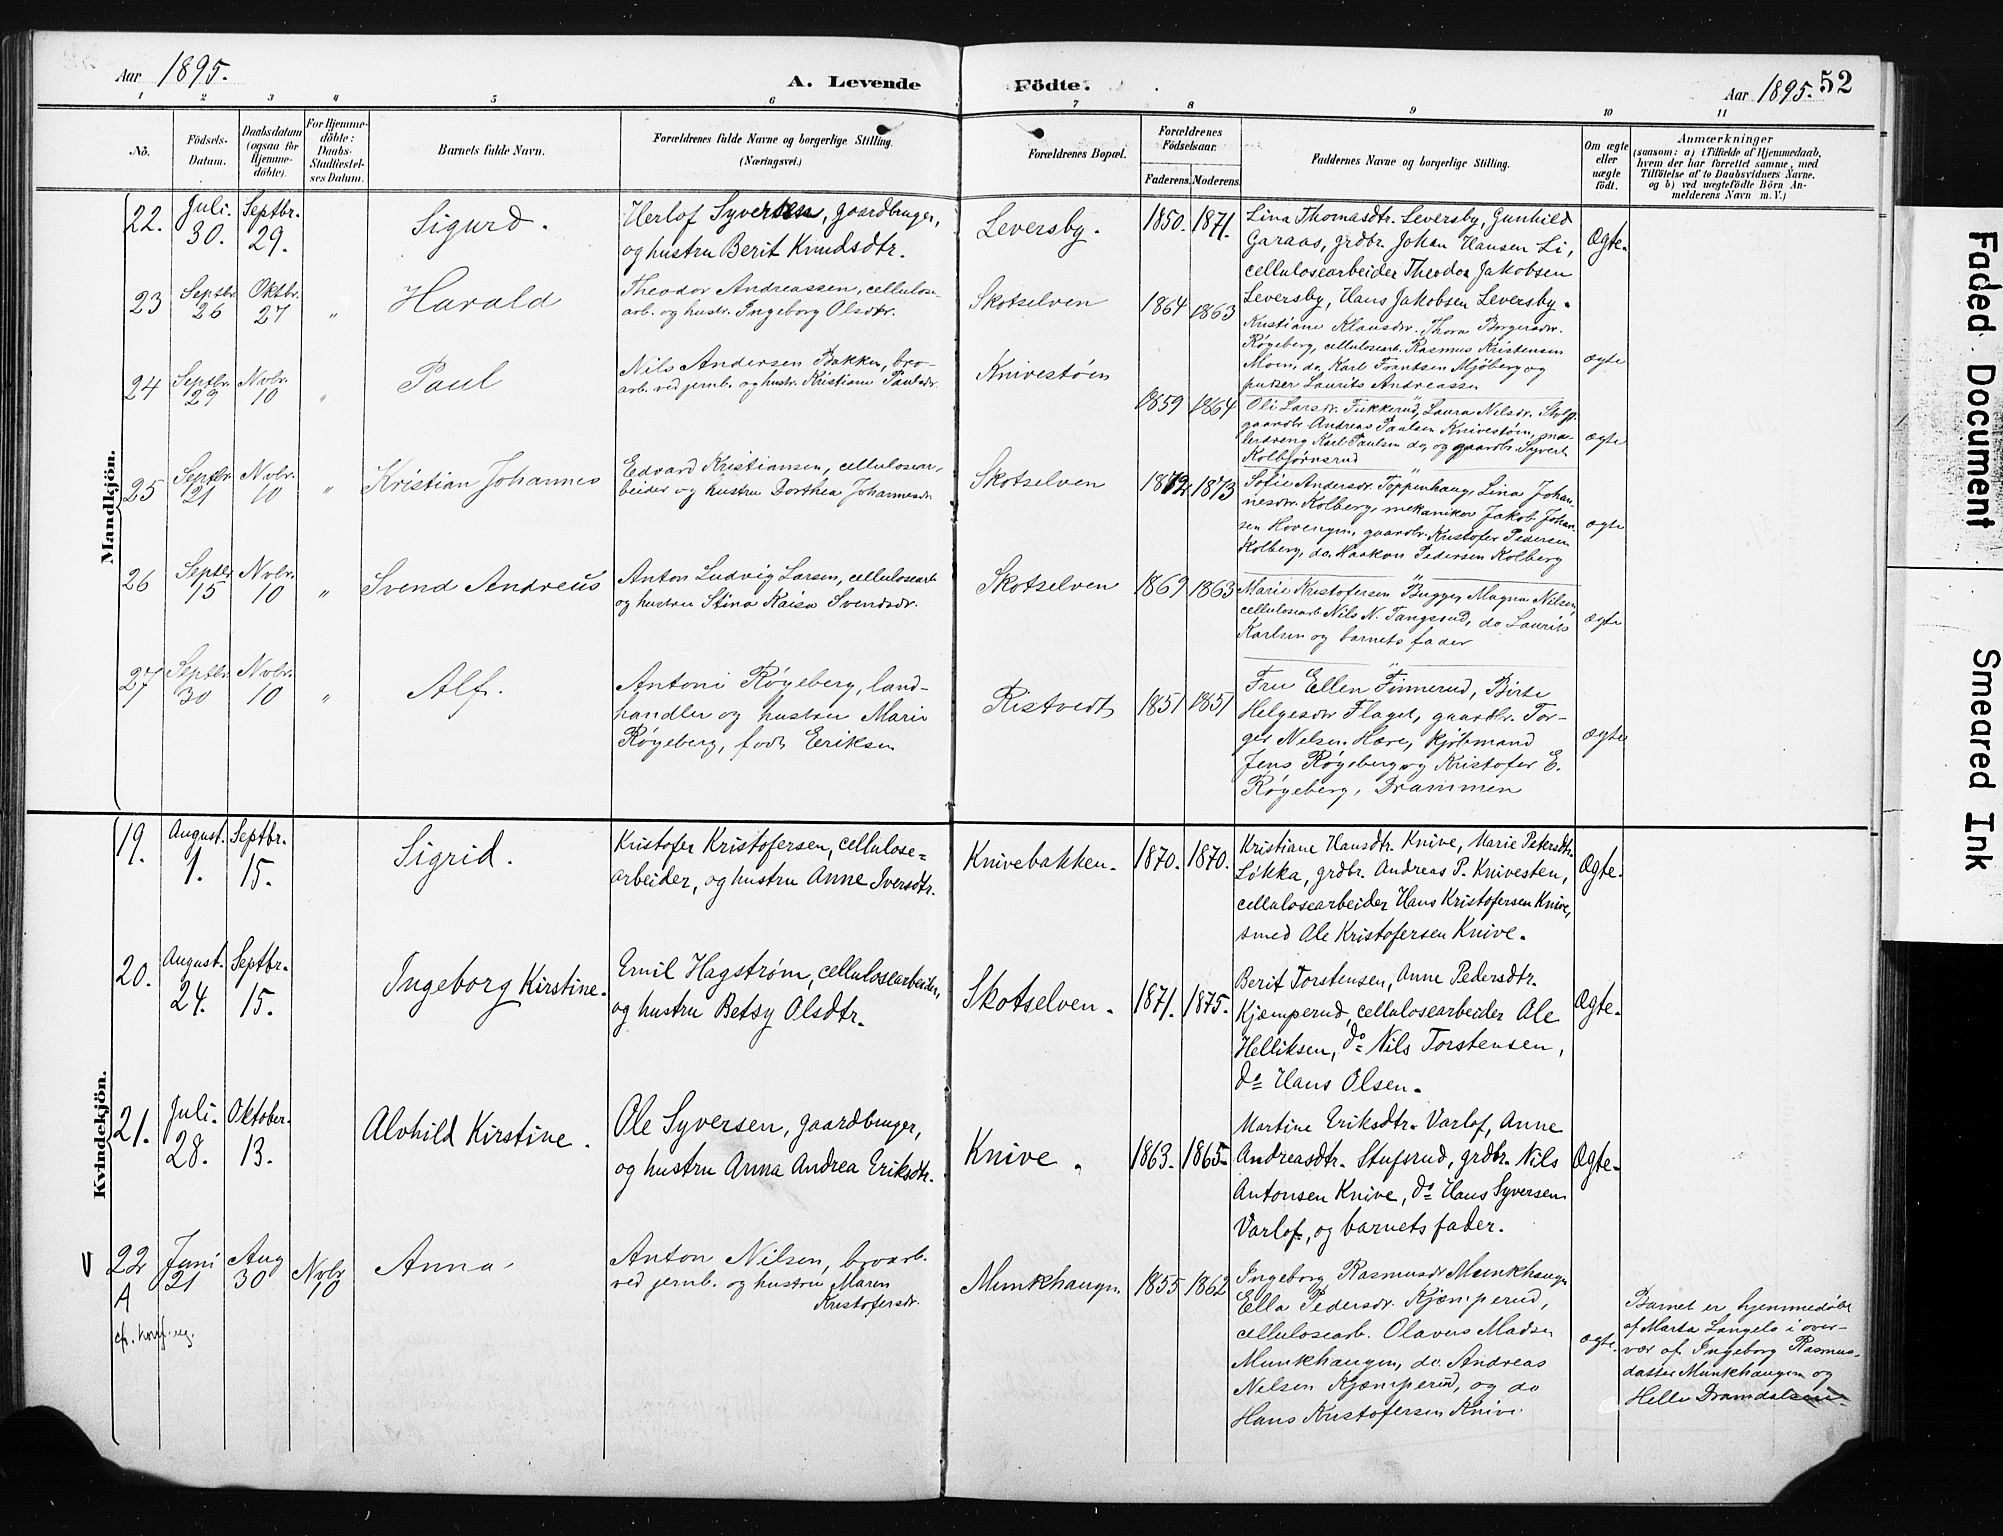 Aar 1895.
A. Levende Födte.
Aar 1895. 52
1 2 3 4 5 6 7 8 9 10 11
No.
Födsels-
Datum.
Daabsdatum
(ogsaa for
Hjemme-
döbte).
For Hjemme-
döbte:
Daabs-
Stadfestel-
ses Datum.
Barnets fulde Navn.
Forældrenes fulde Navne og borgerlige Stilling.
(Næringsvei.)
Forældrenes Bopæl.
Forældrenes
Födselsaar.
Faderens. Moderens.
Faddernes Navne og borgerlige Stilling.
Om ægte
eller
uægte
födt.
Anmærkninger
(saasom: a) i Tilfælde af Hjemmedaab,
hvem der har forrettet samme, med
Tilföielse af to Daabsvidners Navne.
og b) ved uægtefödte Börn An-
melderens Navn m. V.)
Mandkjön.
22. Juli. 30. Septbr. 29.
Sigurd.
Herlof Syversen, gaardbruger,
og hustru Berit Knudsdtr.
Leversby.
1850. 1871.
Lina Thomasdtr. Leversby, Gunhild
Garaas, grdbr. Johan Hansen Li,
cellulosearbeider Theodor Jakobsen
Leversby, Hans Jakobsen Leversby.
Ægte.
23 Septbr. 26 Oktbr. 27 "
Harald
Theodor Andreassen, cellulose-
arb. og hustr. Ingeborg Olsdtr.
Skotselven
1864 1863
Kristiane Klausdr. Thora Borgersdr.
Røgeberg, cellulosearb. Rasmus Kristensen
Moen, do. Karl Frantsen Mjøberg og
pudser Laurits Andreassen
ægte
24 Septbr. 29 Novbr. 10 "
Paul
Nils Andersen Bakken, bro-
arb. ved jernb. og hustr. Kristiane Paulsdr.
Knivestøen
1859 1864
Oli Larsdr. Fukkerud, Laura Nilsdr.
gaardbr. Andreas Paulsen Knivestøen, ma-
lerdreng Karl Paulsen do, og gaardbr. Syvert
Kolbjørnsrud
ægte
25 Septbr. 21 Novbr. 10 "
Kristian Johannes
Edvard Kristiansen, cellulosear-
beider og hustru Dorthea Johannesdr.
Skotselven
1872 1873
Sofie Andersdr. Toppenhaug, Lina Johan-
nesdr. Kolberg, mekaniker Jakob Johan-
sen Hovengen, gaardbr. Kristofer Pedersen
Kolberg, do. Haakon Pedersen Kolberg
ægte
26 Septbr 15 Novbr. 10 "
Svend Andreas
Anton Ludvig Larsen, cellulosearb
og hustru Stina Kaisa Svendsdr.
Skotselven
1869 1863
Marie Kristofersen Bugge, Magna Nilsen,
cellulosearb. Nils N. Tangsrud, do Laurits
Karlsen og barnets fader
ægte
27 Septbr 30 Novbr. 10 "
Alf.
Antoni Røgeberg, land-
handler og hustru Marie
Røgeberg, født Eriksen
Ristvedt
1851 1851
Fru Ellen Finnerud, Birte
Helgesdr Flaget, gaardbr. Tor-
ger Nelsen Hære, kjøbmand
Jens Røgeberg og Kristofer E.
Røgeberg, Drammen
ægte
Kvindekjön.
19. August. 1. Septbr. 15.
Sigrid.
Kristofer Kristofersen, cellulose=
arbeider, og hustru Anne Iversdtr.
Knivebakken.
1870. 1870.
Kristiane Hansdtr. Knive, Marie Petersdtr.
Løkka, grdbr. Andreas P. Knivesten,
cellulosearbeider Hans Kristofersen Knive,
smed Ole Kristofersen Knive.
Ægte.
20. August. 24. Septbr. 15.
Ingeborg Kirstine.
Emil Hagstrøm, cellulosearbeider,
og hustru Betsy Olsdtr.
Skotselven.
1871. 1875.
Berit Torstensen, Anne Pedersdtr.
Kjæmperud, cellulosearbeider Ole
Helliksen, do Nils Torstensen,
do Hans Olsen.
Ægte.
21. Juli. 28. Oktober. 13.
Alvhild Kirstine.
Ole Syversen, gaardbruger,
og hustru Anna Andrea Eriksdtr.
Knive.
1863. 1865.
Martine Eriksdtr. Varlof, Anne
Andreasdtr. Stufsrud, grdbr. Nils
Antonsen Knive, do Hans Syversen
Varlof, og barnets fader.
Ægte.
V 22 A Juni 21 Aug 30 Novbr 10
Anna
Anton Nilsen, broarb.
ved jernb. og hustru Maren
Kristofersdr.
Munkhaugen
1855 1862
Ingeborg Rasmusdr Munkhaugen
Ella Pedersdr. Kjæmperud,
cellulosearb. Olavus Madsen
Munkhaugen, do. Andreas
Nelsen Kjæmperud, og do
Hans Kristofersen Knive.
ægte.
Barnet er hjemmedøbt
af Marta Langelo i over-
vær af Ingeborg Rasmus-
datter Munkhaugen og
Helle Dramdalsen
cfr. konf. reg.
Faded Document
Smeared Ink